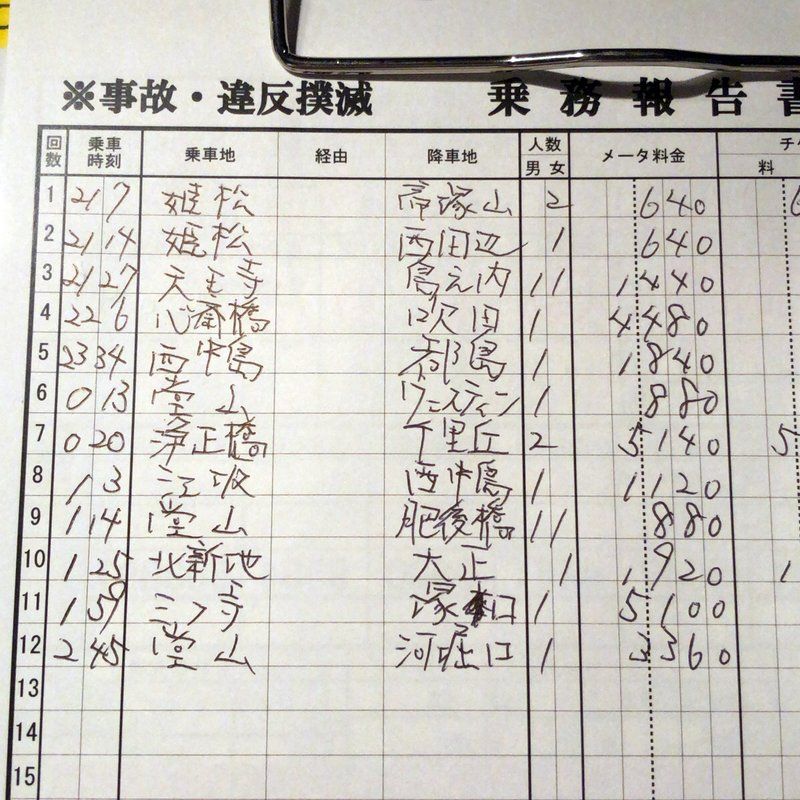 ※事故・違反撲滅 乗務報告書
回数 乗車時刻 乗車地 経由 降車地 人数 男 女 メータ料金 チケ 料
1 21 7 姫松 帝塚山 2 640 6
2 21 14 姫松 西田辺 1 640
3 21 27 天王寺 島之内 1 1 1440
4 22 6 心斎橋 吹田 1 4480
5 23 34 西中島 都島 1 1840
6 0 13 堂山 ウェスティン 1 880
7 0 20 浄正橋 千里丘 2 5140 5
8 1 3 江坂 西中島 1 1120
9 1 14 堂山 肥後橋 1 1 880
10 1 25 北新地 大正 1 1920 1
11 1 59 三ツ寺 塚口 1 5100
12 2 45 堂山 河堀口 1 3360
13
14
15